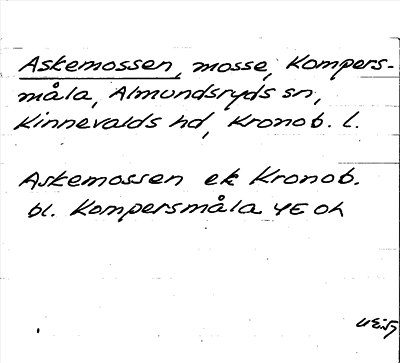 Askemossen, mosse, Kompers-
måla, Almundsryds sn,
Kinnevalds hd, Kronob. l.
Askemossen ek Kronob.
bl. Kompersmåla 4E oh